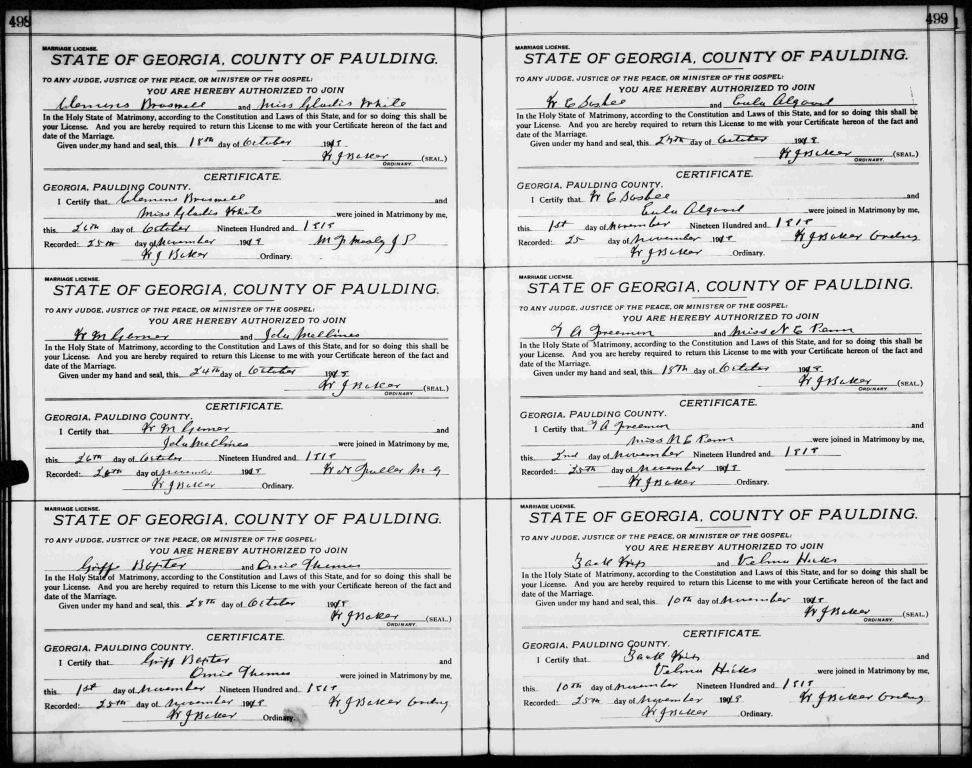 498
MARRIAGE LICENSE.
STATE OF GEORGIA, COUNTY OF PAULDING.
TO ANY JUDGE, JUSTICE OF THE PEACE, OR MINISTER OF THE GOSPEL:
YOU ARE HEREBY AUTHORIZED TO JOIN
Clemens Braswell and Miss Gladis White
In the Holy State of Matrimony, according to the Constitution and Laws of this State, and for so doing this shall be
your License. And you are hereby required to return this License to me with your Certificate hereon of the fact and
date of the Marriage.
Given under my hand and seal, this 18th day of October 191
W J Baker (SEAL.)
ORDINARY.
CERTIFICATE.
GEORGIA, PAULDING COUNTY.
I Certify that Clemens Braswell and
Miss Gladis White were joined in Matrimony by me,
this 26th day of October Nineteen Hundred and
Recorded: 25th day of November 191
W J Baker Ordinary.
MARRIAGE LICENSE.
STATE OF GEORGIA, COUNTY OF PAULDING.
TO ANY JUDGE, JUSTICE OF THE PEACE, OR MINISTER OF THE GOSPEL:
YOU ARE HEREBY AUTHORIZED TO JOIN
W M and
In the Holy State of Matrimony, according to the Constitution and Laws of this State, and for so doing this shall be
your License. And you are hereby required to return this License to me with your Certificate hereon of the fact and
date of the Marriage.
Given under my hand and seal, this 24th day of October 191
W J Baker (SEAL.)
ORDINARY
CERTIFICATE.
GEORGIA, PAULDING COUNTY.
I Certify that W M and
were joined in Matrimony by me,
this 26th day of October Nineteen Hundred and
Recorded: day of November 191
W J Baker Ordinary.
MARRIAGE LICENSE.
STATE OF GEORGIA, COUNTY OF PAULDING.
TO ANY JUDGE, JUSTICE OF THE PEACE, OR MINISTER OF THE GOSPEL:
YOU ARE HEREBY AUTHORIZED TO JOIN
Griff Baxter and Thomas
In the Holy State of Matrimony, according to the Constitution and Laws of this State, and for so doing this shall be
your License. And you are hereby required to return this License to me with your Certificate hereon of the fact and
date of the Marriage.
Given under my hand and seal, this 28th day of October 191
W J Baker (SEAL.)
ORDINARY.
CERTIFICATE.
GEORGIA, PAULDING COUNTY.
I Certify that Griff Baxter and
Thomas were joined in Matrimony by me,
this 1st day of November Nineteen Hundred and
Recorded: 25th day of November 191 W J Baker Ordinary
W J Baker Ordinary.
499
MARRIAGE LICENSE.
STATE OF GEORGIA, COUNTY OF PAULDING.
TO ANY JUDGE, JUSTICE OF THE PEACE, OR MINISTER OF THE GOSPEL:
YOU ARE HEREBY AUTHORIZED TO JOIN
W C and Eula
In the Holy State of Matrimony, according to the Constitution and Laws of this State, and for so doing this shall be
your License. And you are hereby required to return this License to me with your Certificate hereon of the fact and
date of the Marriage.
Given under my hand and seal, this day of October 191
W J Baker (SEAL.)
ORDINARY.
CERTIFICATE.
GEORGIA, PAULDING COUNTY.
I Certify that W C and
Eula were joined in Matrimony by me,
this 1st day of November Nineteen Hundred and
Recorded: 25 day of November 191 W J Baker Ordinary
W J Baker Ordinary.
MARRIAGE LICENSE.
STATE OF GEORGIA, COUNTY OF PAULDING.
TO ANY JUDGE, JUSTICE OF THE PEACE, OR MINISTER OF THE GOSPEL:
YOU ARE HEREBY AUTHORIZED TO JOIN
A Freeman and Miss N E
In the Holy State of Matrimony, according to the Constitution and Laws of this State, and for so doing this shall be
your License. And you are hereby required to return this License to me with your Certificate hereon of the fact and
date of the Marriage.
Given under my hand and seal, this 18th day of October 191
W J Baker (SEAL.)
ORDINARY
CERTIFICATE.
GEORGIA, PAULDING COUNTY.
I Certify that A Freeman and
Miss N E were joined in Matrimony by me,
this 2nd day of November Nineteen Hundred and
Recorded: 25th day of November 191
W J Baker Ordinary.
MARRIAGE LICENSE.
STATE OF GEORGIA, COUNTY OF PAULDING.
TO ANY JUDGE, JUSTICE OF THE PEACE, OR MINISTER OF THE GOSPEL:
YOU ARE HEREBY AUTHORIZED TO JOIN
Zack and Velma Hicks
In the Holy State of Matrimony, according to the Constitution and Laws of this State, and for so doing this shall be
your License. And you are hereby required to return this License to me with your Certificate hereon of the fact and
date of the Marriage.
Given under my hand and seal, this 10th day of November 191
W J Baker (SEAL.)
ORDINARY.
CERTIFICATE.
GEORGIA, PAULDING COUNTY.
I Certify that Zack and
Velma Hicks were joined in Matrimony by me,
this 10th day of November Nineteen Hundred and
Recorded: 25th day of November 191 W J Baker Ordinary
W J Baker Ordinary.